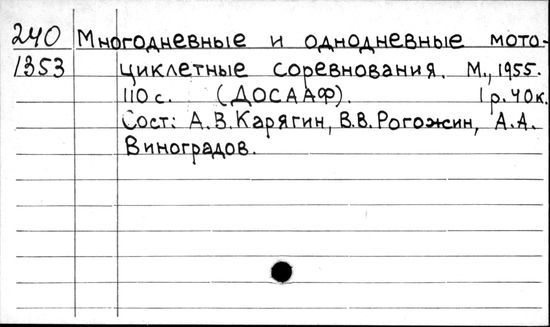 240 Многодневные и однодневные мото-
1353 циклетные соревнования. М., 1955.
110 с. (ДОСААФ). 1 р. 40 к.
Сост: А.В. Карягин, В.В. Рогожин, А.А.
Виноградов.